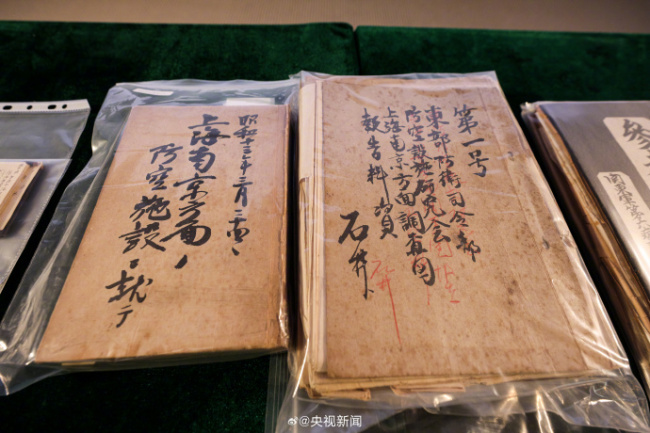 昭和十三年三月
上海南京方面ノ
防空施設ニ就テ
第一号
東部防衛司令部
防空設施研究会
上海南京方面調査団
報告資料
石井
@央视新闻